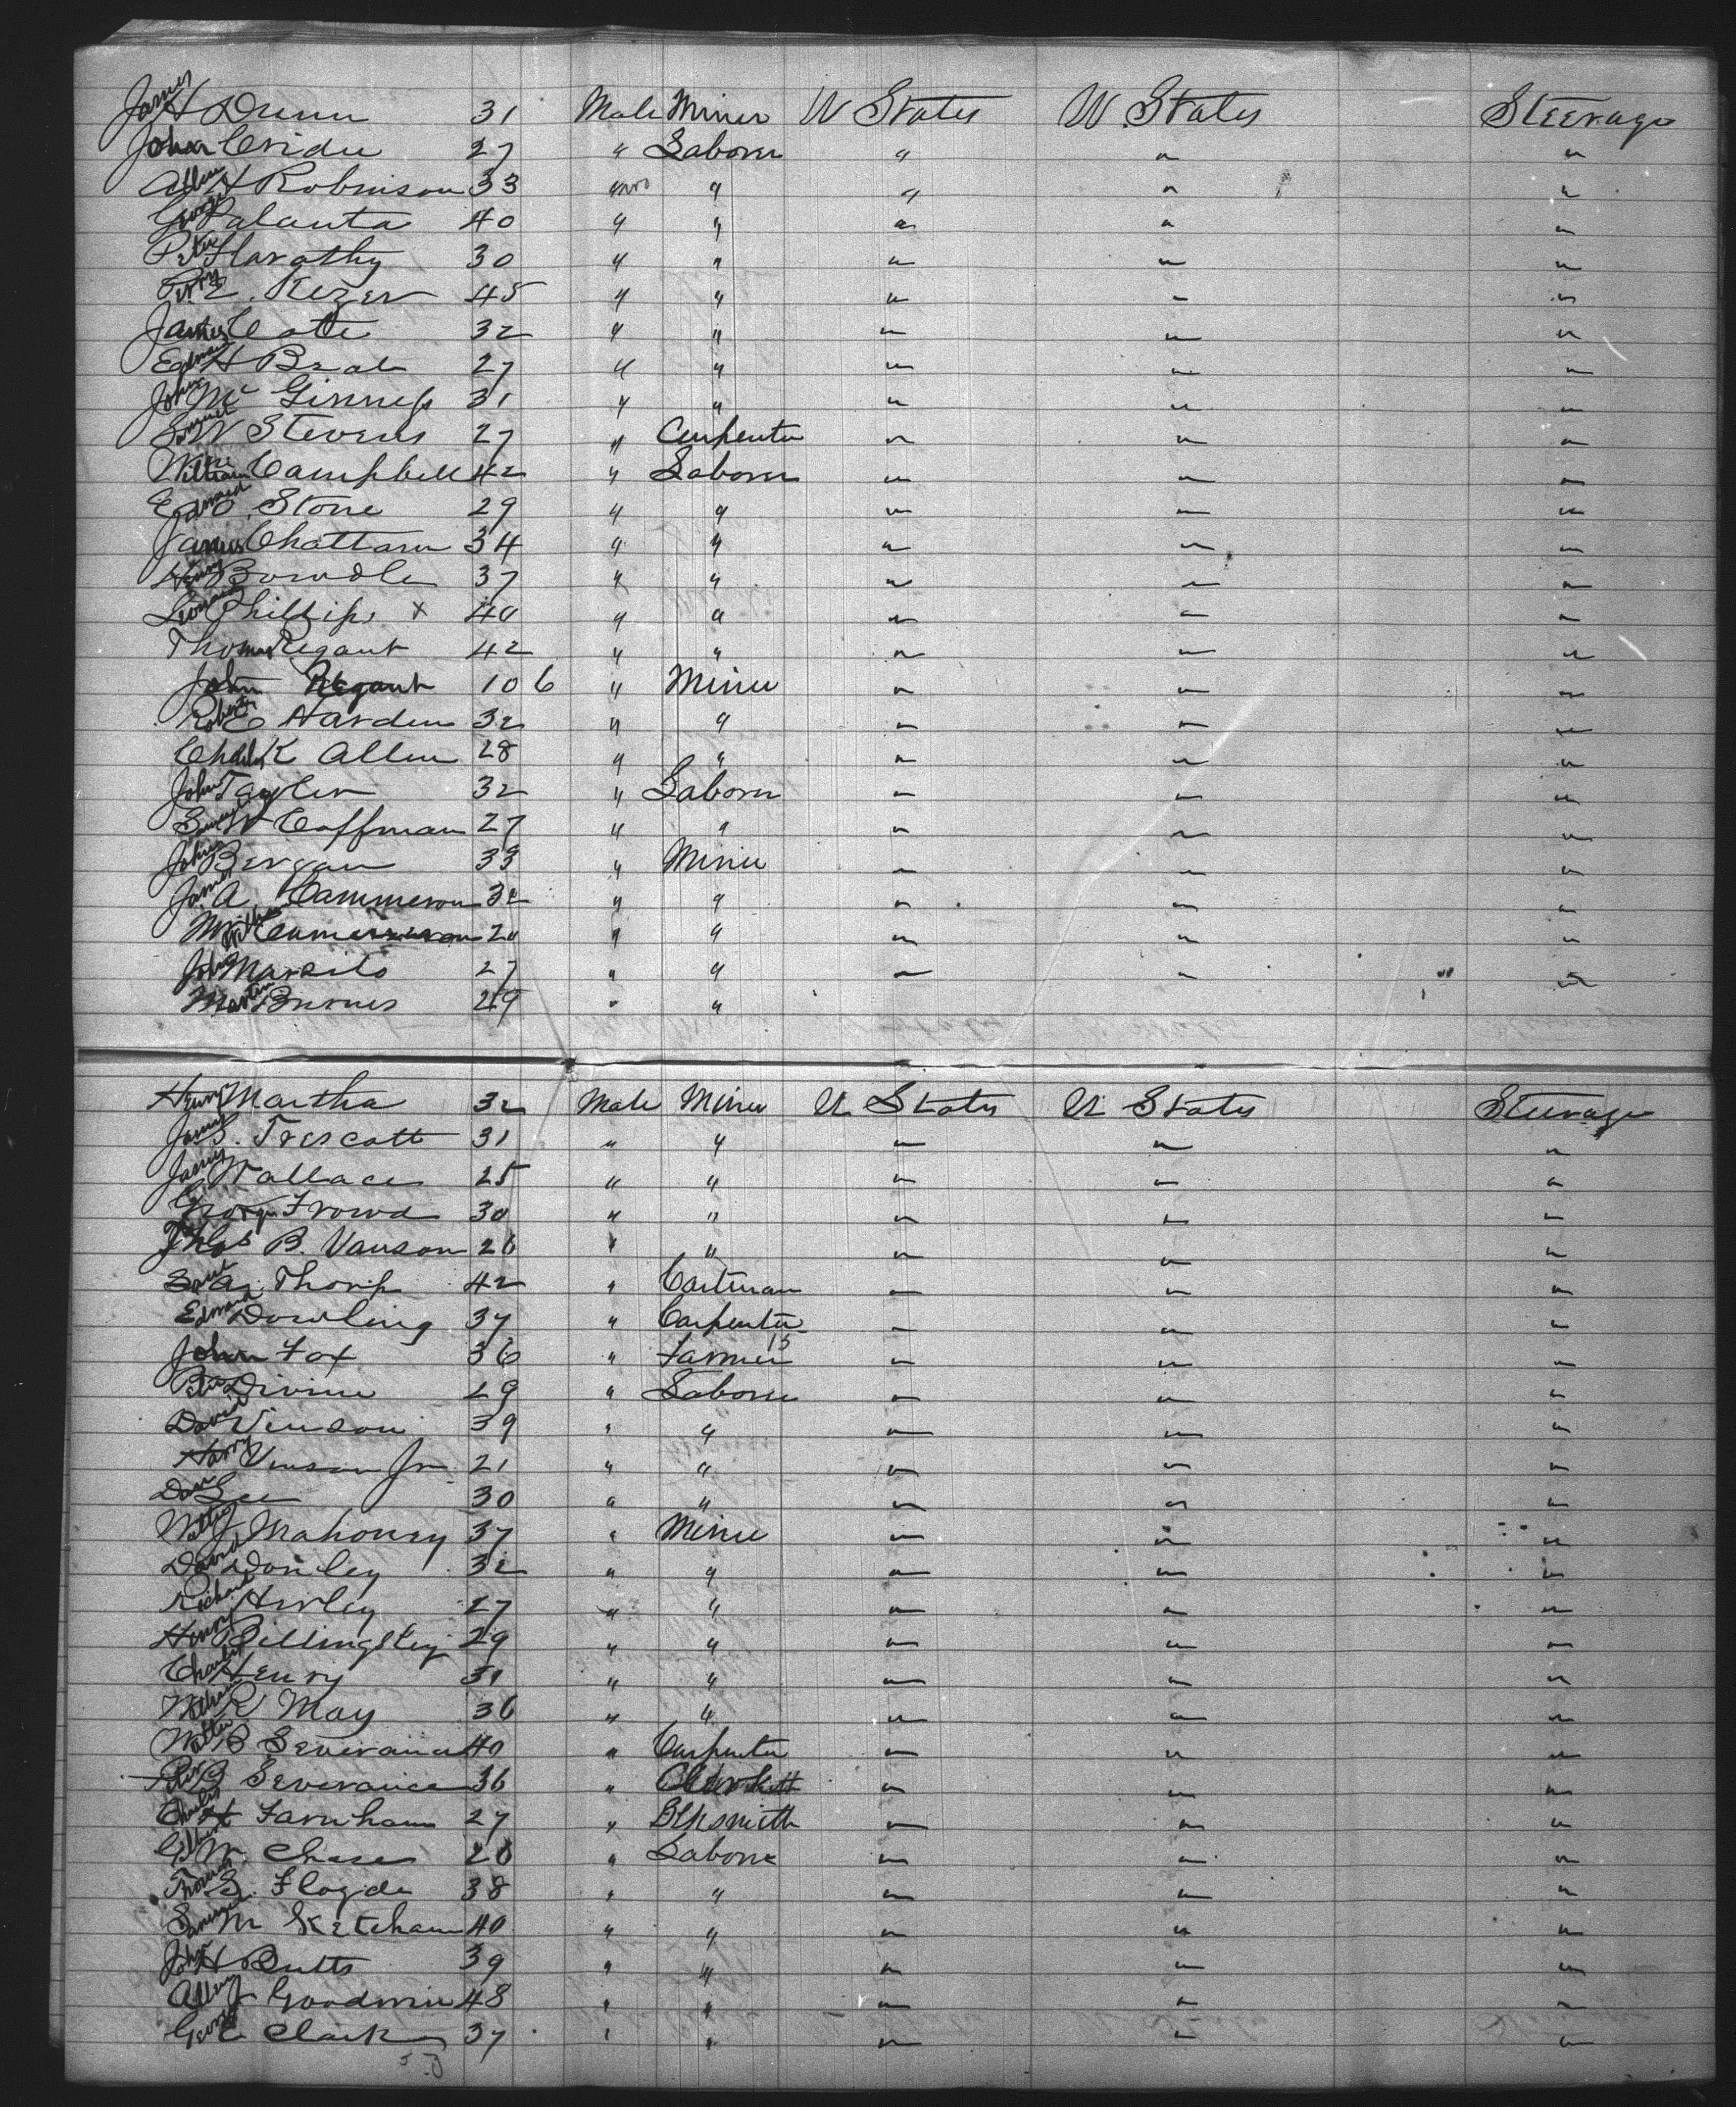 James H Dunn 31 Male Miner U States U. States Steerage
John Cridu 27 " Laborer " " "
Allen H Robinson 33 " " " " "
George Palanta 40 " " " " "
Peter Harathy 30 " " " " "
Perry E. Kezer 45 " " " " "
James Cate 32 " " " " "
Edwin H Beal 27 " " " " "
John Mc Ginness 31 " " " " "
Samuel W Stevens 27 " Carpenter " " "
William Campbell 42 " Laborer " " "
Edward O. Stone 29 " " " " "
James Chattam 34 " " " " "
Henry Bowdle 37 " " " " "
Leonard Phillips x 40 " " " " "
Thomas Regant 42 " " " " "
John Regant 10 6 " Miner " " "
Robert C Harden 32 " " " " "
Charles K Allen 28 " " " " "
John Tayler 32 " Laborer " " "
Samuel W Coffman 27 " " " " "
John Bergan 33 " Miner " " "
James A. Cammeron 32 " " " " "
William Cammeron 20 " " " " "
John Marsilo 27 " " " " "
Martin Burnes 49 " "
Henry Martha 32 Male Miner U States U States Steerage
James S. Trescott 31 " " " " "
James Wallace 25 " " " " "
George Frowd 30 " " " " "
Thos B. Vanson 26 " " " " "
Saml A. Thorp 42 " Cartman " " "
Edward Dowling 37 " Carpenter " " "
John Fox 36 " Farmer 15 " " "
Peter Divine 29 " Laborer " " "
David Vinson 39 " " " " "
Harry Vinson Jr 21 " " " " "
Dan Lee 30 " " " " "
Walter J Mahoney 37 " Miner " " "
David Donley 32 " " " " "
Richard Hirley 27 " " " " "
Henry Billingsley 29 " " " " "
Charles Henry 31 " " " " "
William R May 36 " " " " "
Walter B Severance 40 " Carpenter " " "
B Severance 36 " " " "
Charles H Farnham 27 " Blksmith " " "
Gilbert W. Chase 28 " Laborer " " "
Thomas S. Floyde 38 " " " " "
Samuel M Ketcham 40 " " " " "
John H Butts 39 " " " " "
Allen J Goodwin 48 " " " " "
George C Clark 37 " " " " "
53